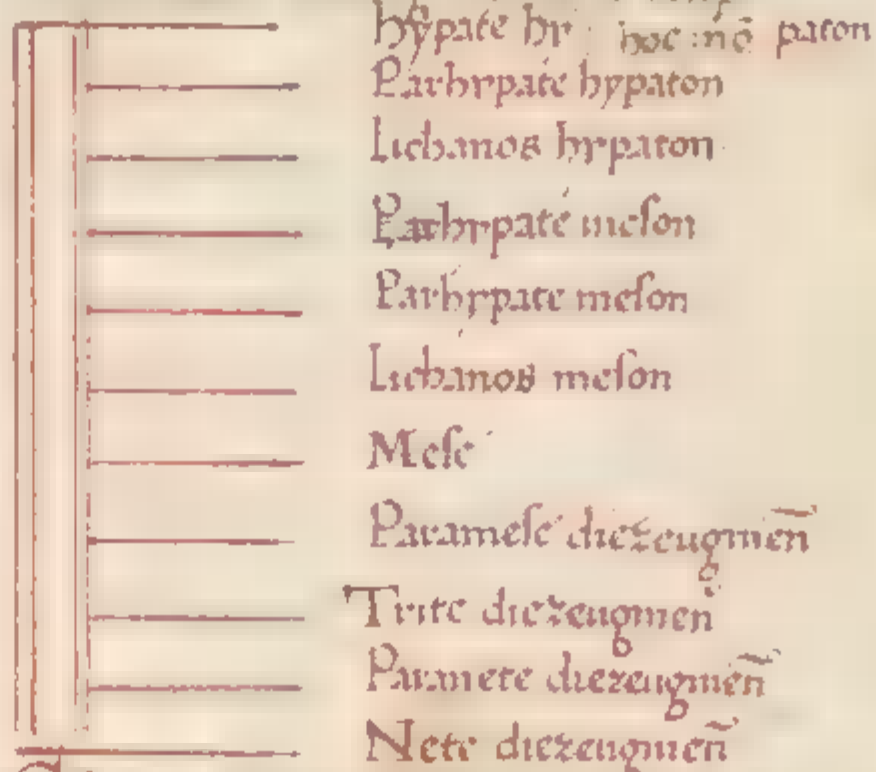 hypate hy hoc mō paton
Parhypate hypaton
Lichanos hypaton
Parhypate meson
Parhypate meson
Lichanos meson
Mese
Paramese diezeugmen̄
Trite diezeugmen̄
Paranete diezeugmen̄
Nete diezeugmen̄